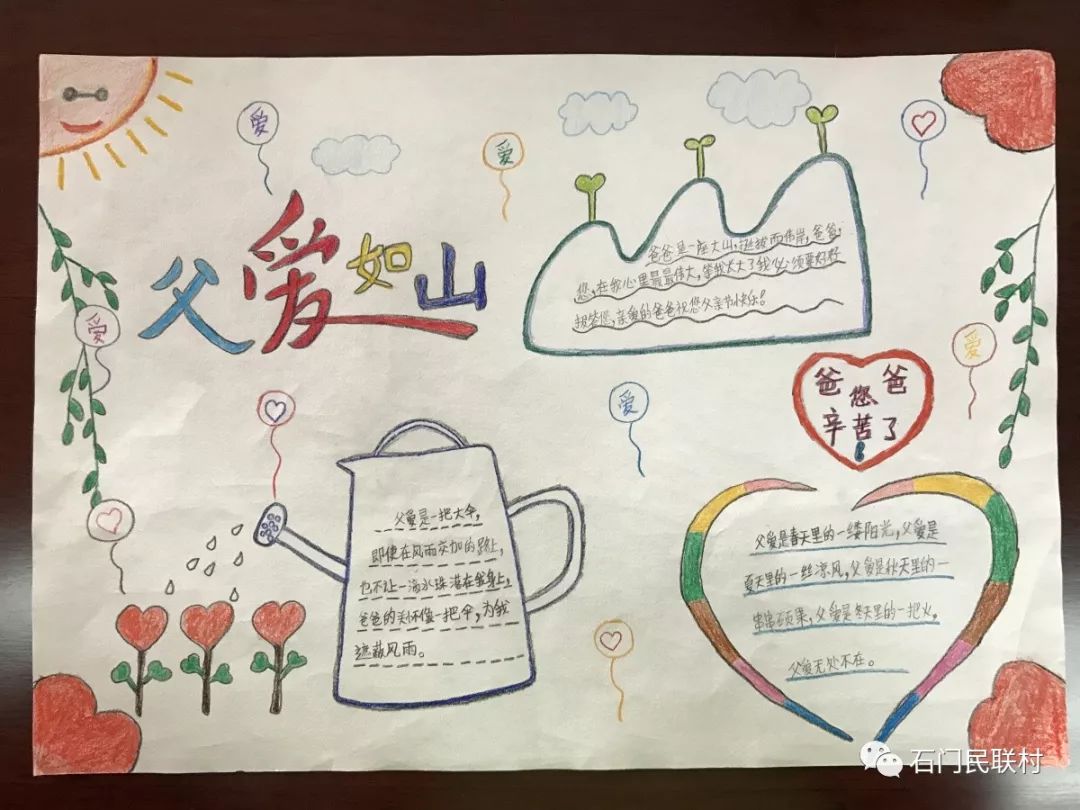 爱
爱
父爱如山
爸爸是一座大山,挺拔而伟岸,爸爸,
您,在我心里最最伟大,等我长大了我必须要好好
报答您,亲爱的爸爸祝您父亲节快乐!
爱
爱
爱
爸您爸
辛苦了
父爱是一把大伞,
即使在风雨交加的路上,
也不让一滴水珠洒在
爸爸的关怀像一把伞,为我
遮蔽风雨。
父爱是春天里的一缕阳光,父爱是
夏天里的一丝凉风,父爱是秋天里的一
串串硕果,父爱是冬天里的一把火,
父爱无处不在。
石门民联村